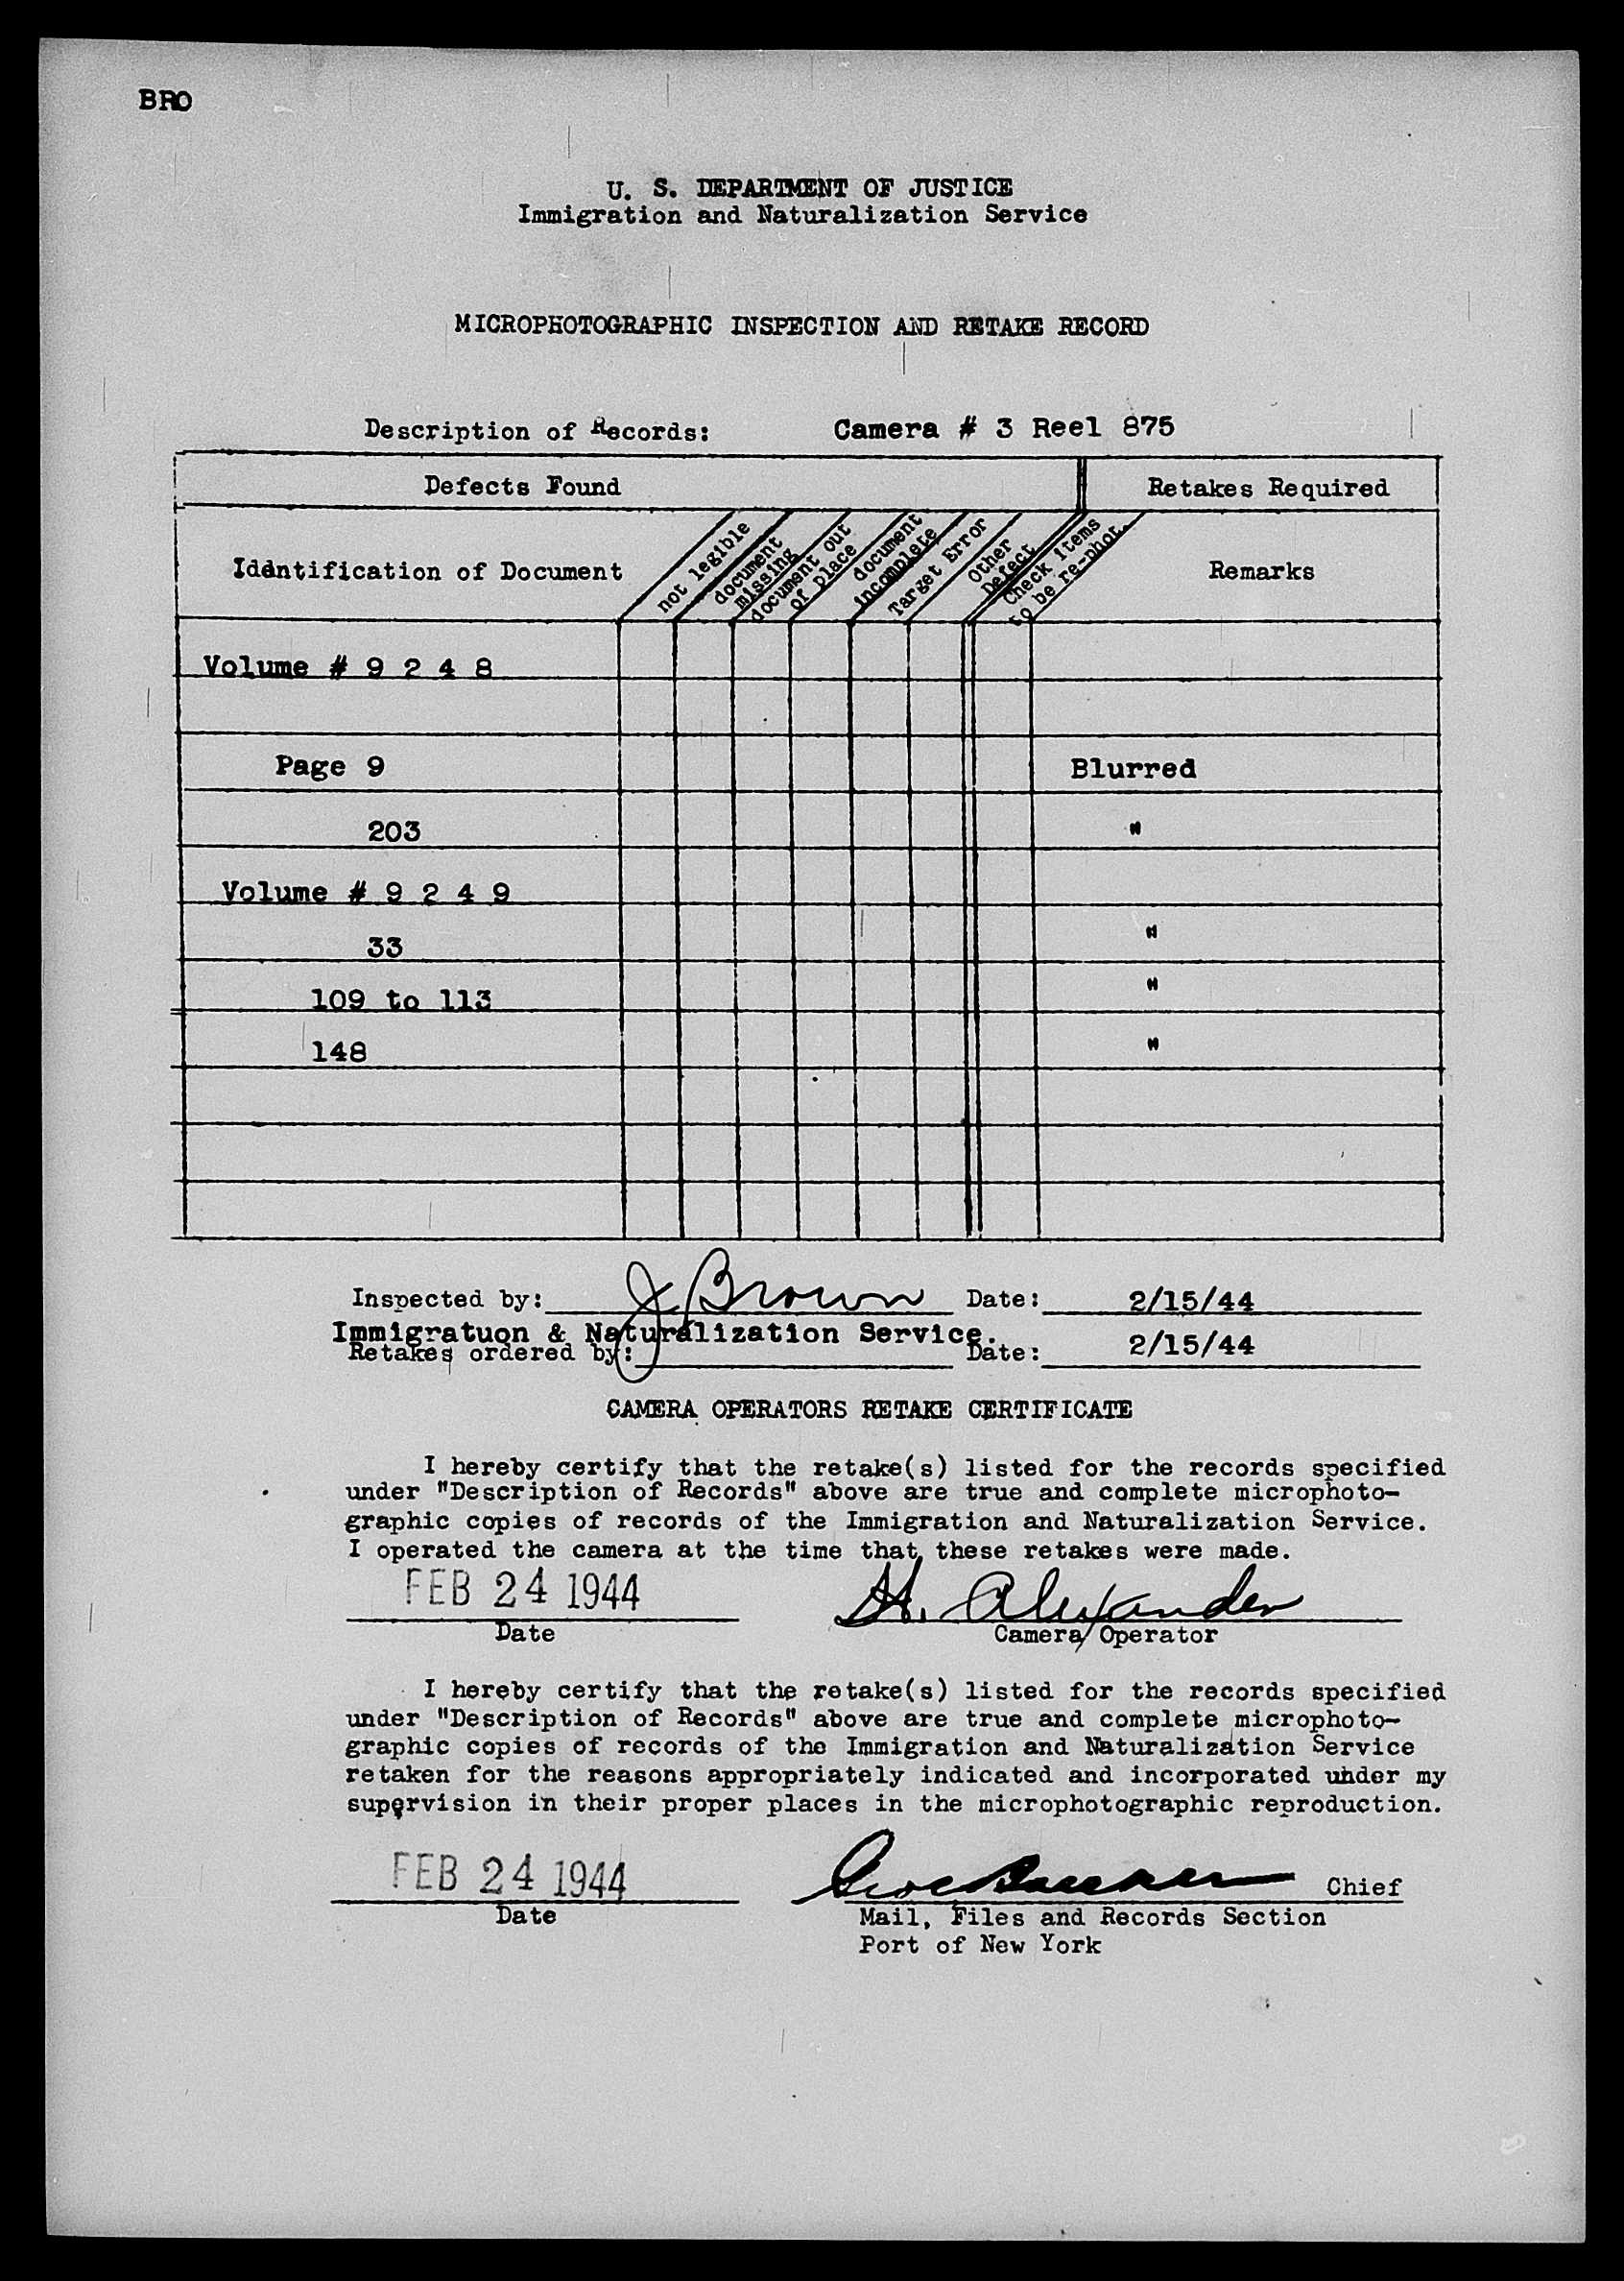 BRO
U. S. DEPARTMENT OF JUSTICE
Immigration and Naturalization Service
MICROPHOTOGRAPHIC INSPECTION AND RETAKE RECORD
Description of Records: Camera # 3 Reel 875
Defects Found Retakes Required
Identification of Document
not legible
document
missing
document out
of place
document
incomplete
Target Error
Other
Defect
Check items
to be re-phot.
Remarks
Volume # 9 2 4 8
Page 9 Blurred
203 "
Volume # 9 2 4 9
33 "
109 to 113 "
148 "
Inspected by: J Brown Date: 2/15/44
Immigratuon & Naturalization Service.
Retakes ordered by: Date: 2/15/44
CAMERA OPERATORS RETAKE CERTIFICATE
I hereby certify that the retake(s) listed for the records specified
under "Description of Records" above are true and complete microphoto-
graphic copies of records of the Immigration and Naturalization Service.
I operated the camera at the time that these retakes were made.
FEB 24 1944 H. Alexander
Date Camera Operator
I hereby certify that the retake(s) listed for the records specified
under "Description of Records" above are true and complete microphoto-
graphic copies of records of the Immigration and Naturalization Service
retaken for the reasons appropriately indicated and incorporated under my
supervision in their proper places in the microphotographic reproduction.
FEB 24 1944 Chief
Date Mail, Files and Records Section
Port of New York